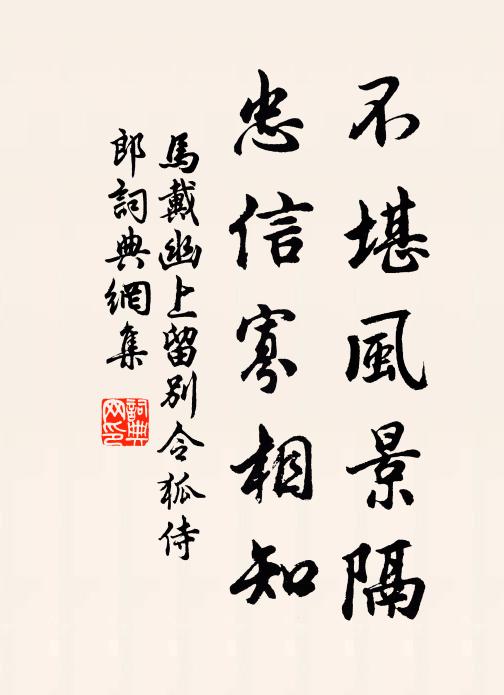 不堪風景隔
忠信寡相知
馬戴幽上留別令狐侍
郎詞典網集
詞典
网印